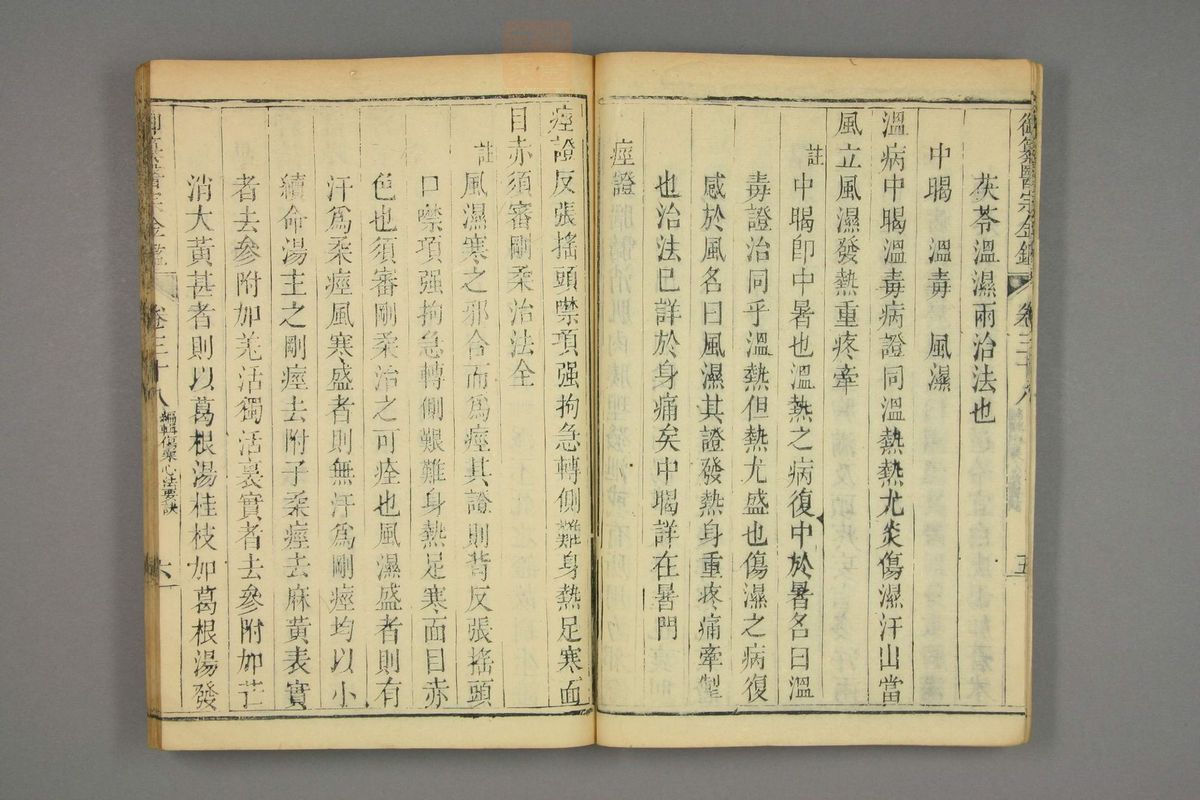 御纂醫宗金鑑 卷三十八 五
茯苓溫濕兩治法也
中暍 溫毒 風濕
溫病中暍溫毒病證同溫熱熱尤炎傷濕汗出當
風立風濕發熱重疼牽
註 中暍卽中暑也溫熱之病復中於暑名曰溫
毒證治同乎溫熱但熱尤盛也傷濕之病復
感於風名曰風濕其證發熱身重疼痛牽掣
也治法已詳於身痛矣中暍詳在暑門
痙證
痙證反張搖頭噤項强拘急轉側難身熱足寒面
目赤須審剛柔治法全
註 風濕寒之邪合而爲痙其證則背反張搖頭
口噤項强拘急轉側艱難身熱足寒面目赤
色也須審剛柔治之可痊也風濕盛者則有
汗爲柔痙風寒盛者則無汗爲剛痙均以小
續命湯主之剛痙去附子柔痙去麻黃表實
者去參附加羌活獨活裏實者去參附加芒
消大黃甚者則以葛根湯桂枝加葛根湯發
御纂醫宗金鑑 卷三十八 編輯傷寒心法要訣 六